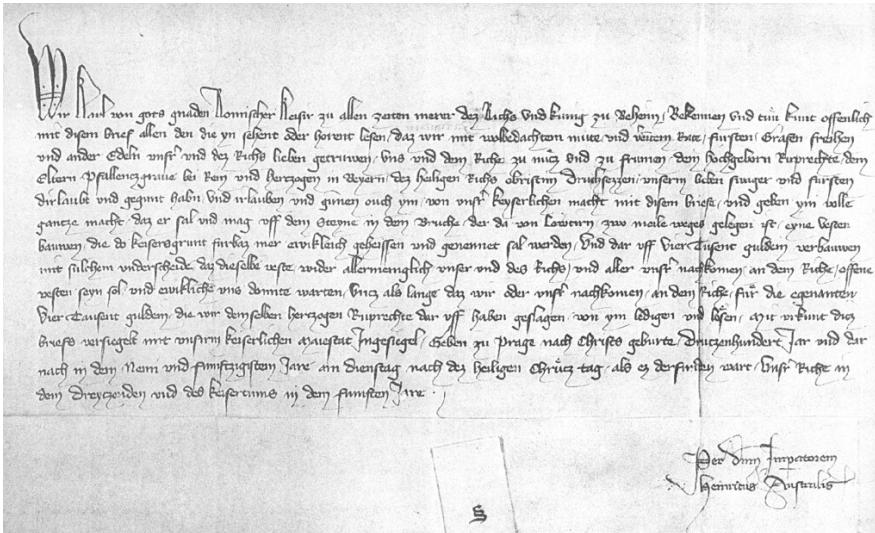 Wir Karl von gots gnaden Romischer Keisir zu allen zeiten merer dez Richs vnd kunig zu Beheim, Bekennen vnd tun kunt offenlich
mit disem brief allen den die yn sehent oder horent lesen, daz wir mit wolbedachtem mute vnd Rate, fursten, Grafen freyhen
vnd ander Edeln vnsr vnd dez Richs lieben getruwen, vns vnd dem Riche zu nucz vnd zu frumen, dem hochgeborn Ruprechte dem
Eltern Pfallenczgraue bei Rein vnd herczogen in Beyern, dez heiligen Richs obristem Druchsezzen, vnserm lieben swager vnd fursten
dirlaubt vnd gegunt habin, vnd irlauben vnd gunnen ouch ym, von vnsr keyserlichen macht mit disem briefe, vnd geben ym volle
gantze macht, daz er sal vnd mag vff dem Steyne in dem Bruche, der da von Lowtern, zwo meile weges gelegen ist, eyne vesten
bauwen, die do keisersgrunt furbaz mer ewikleich geheissen vnd genennet sal werden, Vnd dar vff Vier Tusent guldein verbauwen
mit sulchem vnderscheide daz dieselbe veste, wider allermenglich vnser vnd des Richs, vnd aller vnsr nachkomen, an dem Riche, offene
vesten seyn sol, vnd ewikliche vns domite warten, Vncz als lange daz wir oder vnsr nachkomen, an dem Riche, fur die egenanten
Vier Tausent guldein, die wir demselben herczogen Ruprechte dar vff haben geslagen, von ym ledigen vnd losen, Mit vrkunt dicz
briefs versigelt mit vnsirm keiserlichen Maiestat Ingesigel, Geben zu Prage nach Christs geburte, Drutzenhundert Jar vnd dar
nach in dem Neun vnd funftzigistem Jare, am dienstag, nach dez heiligen Chrucz tag, als ez derfunden wart, Vnsr Riche in
dem dreyczenden vnd des keisertums in dem funften Jare.
Per dnm Impatorem
Heinricus Australis
S